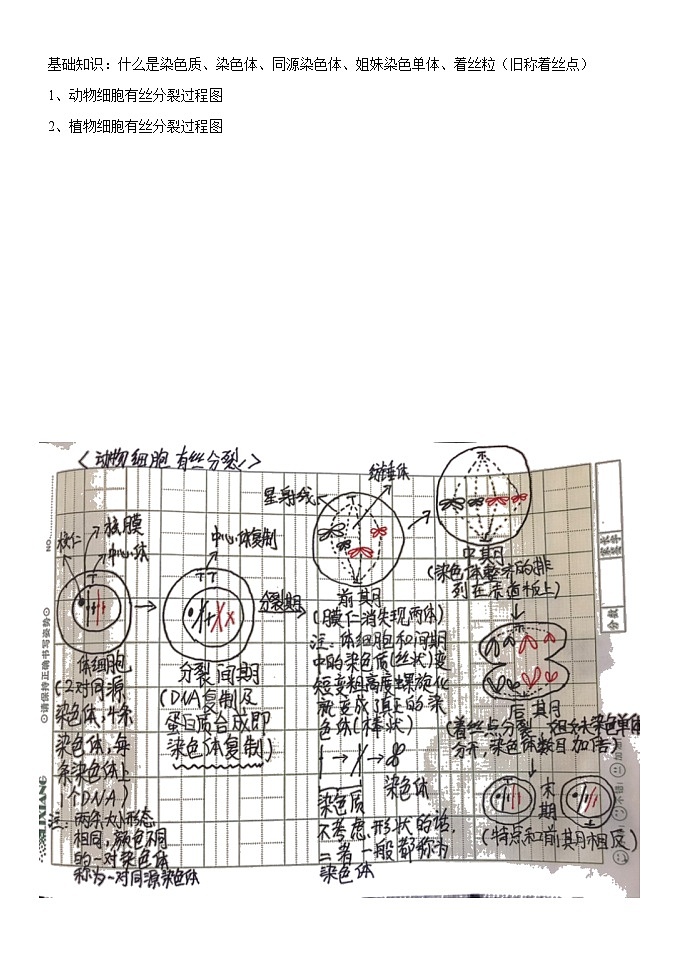 基础知识：什么是染色质、染色体、同源染色体、姐妹染色单体、着丝粒（旧称着丝点）
1、动物细胞有丝分裂过程图
2、植物细胞有丝分裂过程图
<动物细胞有丝分裂>
纺锤体
星射线
核仁
核膜
中心体
中心体复制
分裂期
体细胞
(2对同源
染色体,4条
染色体,每
条染色体上
1个DNA)
注:两条大小形态
相同,颜色不同
的一对染色体
称为一对同源染色体
分裂间期
(DNA复制及
蛋白质合成即
染色体复制)
前期
(膜仁消失现两体)
注:体细胞和间期
中的染色质(丝状)变
短变粗高度螺旋化
就变成了真正的染
色体(棒状)
染色质
染色体
不考虑形状的话,
二者一般都称为
染色体
中期
(染色体整齐的排
列在赤道板上)
后期
(着丝点分裂,姐妹染色单体
分开,染色体数目加倍)
末期
(特点和前期相反)
NO.
请保持正确书写姿势
LIXIANG
分数